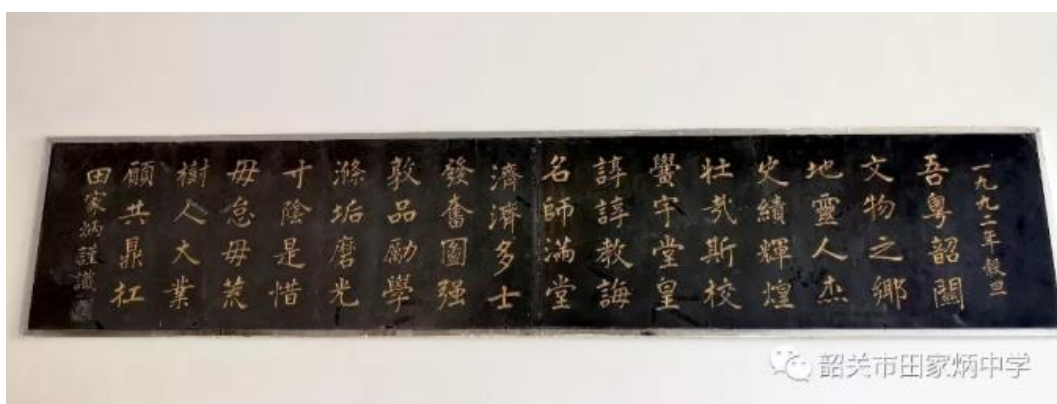 一九九二年穀旦
吾粵韶關
文物之鄉
地靈人杰
史績輝煌
壯哉斯校
黌宇堂皇
諄諄教誨
名師滿堂
濟濟多士
發奮圖强
敦品勵學
滌垢磨光
寸陰是惜
毋怠毋荒
樹人大業
願共鼎扛
田家炳謹識
韶关市田家炳中学